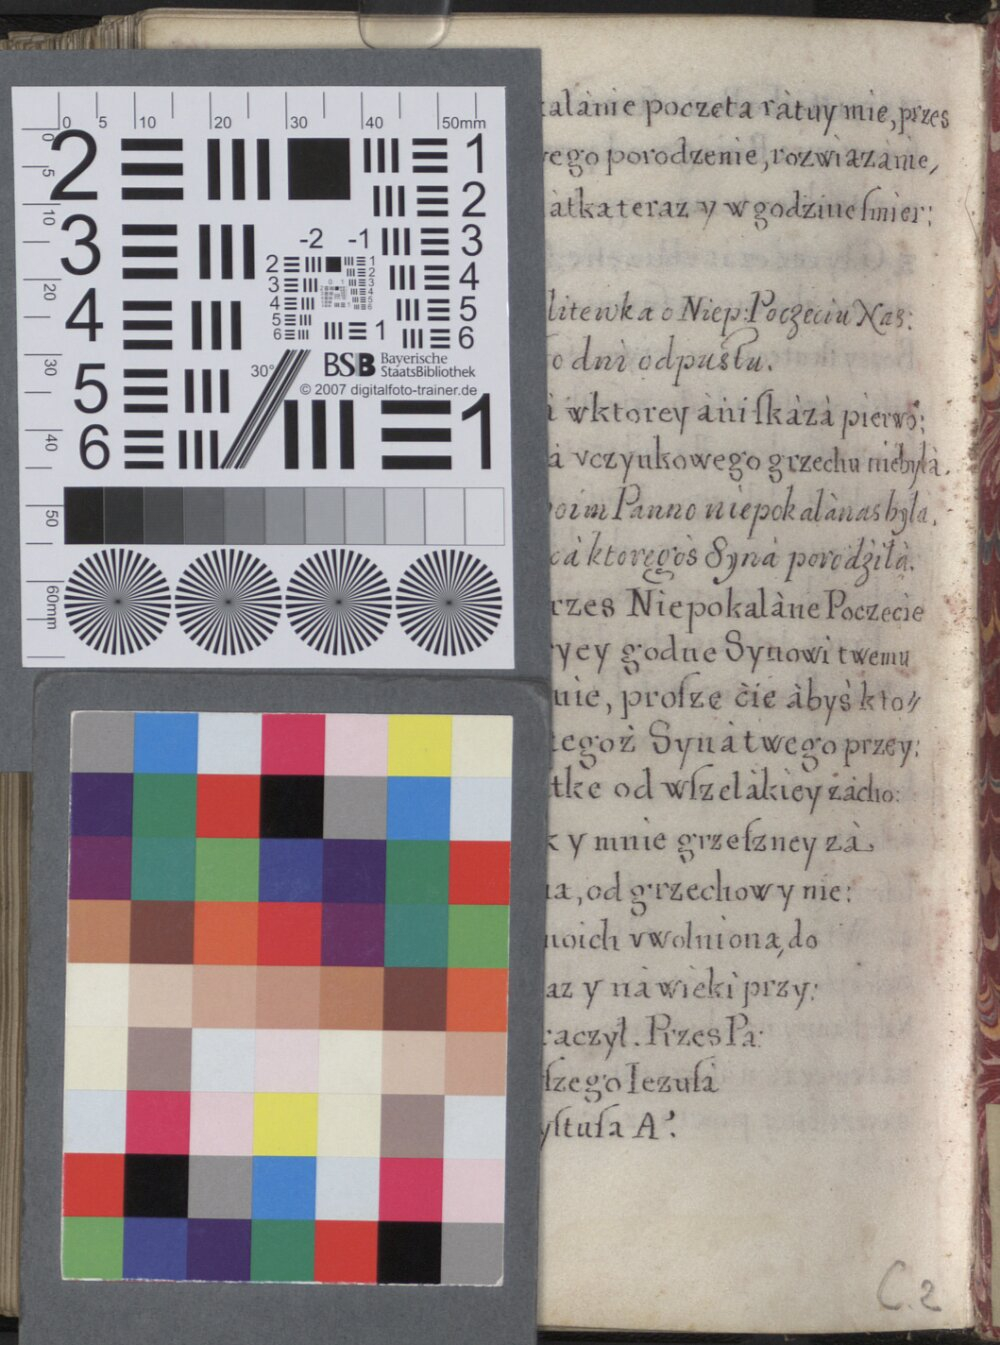 0 5 10 20 30 40 50mm
0 5 10 20 30 40 50 60mm
2 1
2
3 -2 -1 3
2 1
3 2
4 3
4 4
5 5
6 1 6
30° BSB Bayerische
StaatsBibliothek
© 2007 digitalfoto-trainer.de
5
6 1
kalànie poczeta ràtuy mie, przes
ego porodzenie, rozwiązánie,
átka teraz y w godzine ſmier:
litewka o Niep: Poczeciu Nas:
o dni odpustu.
i wktorey àni ſkàzà pierwo:
á vczynkowego grzechu niebyłà.
oim Panno niepokalànas byla,
cà ktoregòs Synà porodźiłà.
rzes Niepokalàne Poczecie
yey godne Synowi twemu
nie, proſze ċie àbyś kto//
tegoż Syná twego przey:
tke od wſzelàkiey zácho:
k y mnie grzeſzney zà
na, od grzechow y nie:
moich vwolniona, do
az y nà wieki przy:
raczył. Przes Pa:
ſzego Iezuſà
yſtuſa A.
C. 2